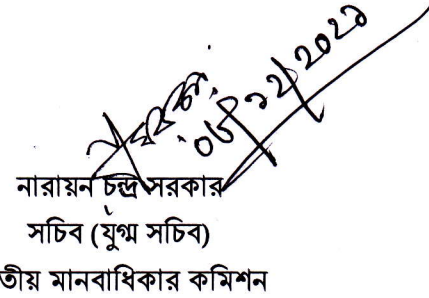 ০৬/১২/২০২১
নারায়ন চন্দ্র সরকার
সচিব (যুগ্ম সচিব)
তীয় মানবাধিকার কমিশন